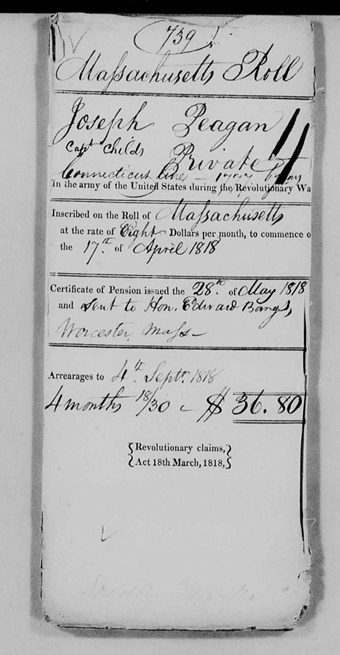 739
Massachusetts Roll
Joseph Peagan
Capt Childs Private
Connecticut line
In the army of the United States during the Revolutionary Wa
Inscribed on the Roll of Massachusetts
at the rate of Eight Dollars per month, to commence o
the 17th of April 1818
Certificate of Pension issued the 28th of May 1818
and sent to Hon. Edward Bangs,
Worcester, Mass
Arrearages to 4th Septr. 1818
4 months 18/30 - $ 36.80
Revolutionary claims,
Act 18th March, 1818,